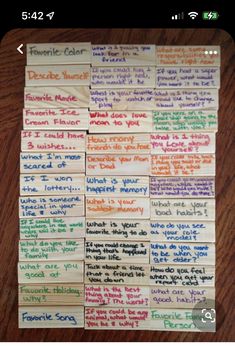 5:42
Favorite Color
What is a quality you look for in a friend
What are some responsibilities you have right now
Describe Yourself
If you could have 1 person right now, who would it be
If you had a super power, what would you want it to be?
Favorite Movie
What is your favorite sport to watch or
What is 1 thing you would like to change about yourself?
Favorite Ice Cream Flavor
What does love mean to you
If I could have 3 wishes...
How many friends do you have
What is 1 thing you love about yourself?
What I'm most scared of
Describe your Mom or Dad
If I won the lottery...
What is your happiest memory
Who is someone special in your life & why
What is your saddest memory
What are your bad habits?
If I could live anywhere in the world why will it be & why
What is your favorite thing to do
Who do you see as your role model?
What do you like to do with your family
If you could change 1 thing that's happened in your life
What do you want to be when you get older?
What are you good at
Talk about a time that a friend let you down
How do you feel when you get your report card
Favorite Holiday, why?
What is the best thing about your family? The worst?
What are your good habits?
Favorite Song
If you could be any animal, what would you be & why?
Favorite
Person